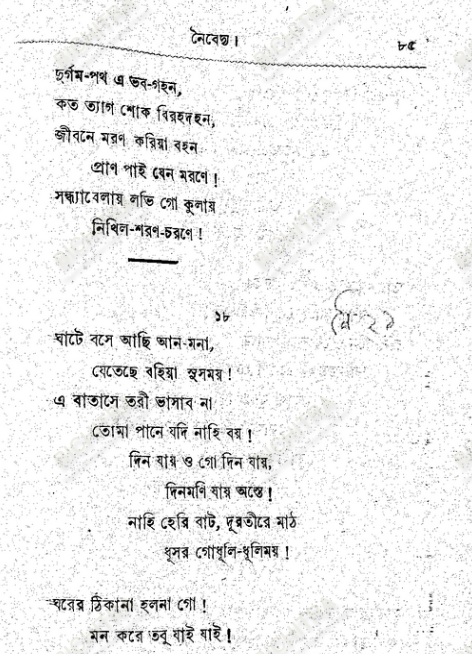 নৈবেদ্য।
৮৫
দুর্গম-পথ এ ভব-গহন,
কত ত্যাগ শোক বিরহদহন,
জীবনে মরণ করিয়া বহন
প্রাণ পাই যেন মরণে!
সন্ধ্যাবেলায় লভি গো কুলায়
নিখিল-শরণ-চরণে!
১৮
ঘাটে বসে আছি আন-মনা,
যেতেছে বহিয়া সুসময়!
এ বাতাসে তরী ভাসাব না
তোমা পানে যদি নাহি বয়!
দিন যায় ও গো দিন যায়,
দিনমণি যায় অস্তে!
নাহি হেরি বাট, দূরতীরে মাঠ
ধূসর গোধূলি-ধূলিময়!
ঘরের ঠিকানা হলনা গো!
মন করে তবু যাই যাই!